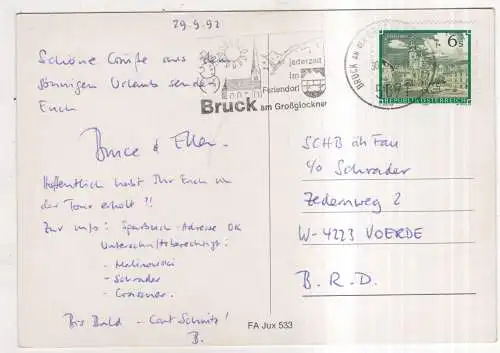 29.9.92
Schöne Grüße aus dem
sonnigen Urlaub sendet
Euch
Bruce & Ellen.
Hoffentlich habt Ihr Euch von
der Tour erholt ?!
Zur Info: Sparbuch-Adresse OK
Unterschriftsberechtigt:
- Malinowski
- Schrader
- Croissner.
Bis Bald -
B.
jederzeit
im
Feriendorf
Bruck am Großglockner
BRUCK AM
5671
6 S
REPUBLIK ÖSTERREICH
SCHB
c/o Schrader
Zedernweg 2
W-4223 VOERDE
B.R.D.
FA Jux 533